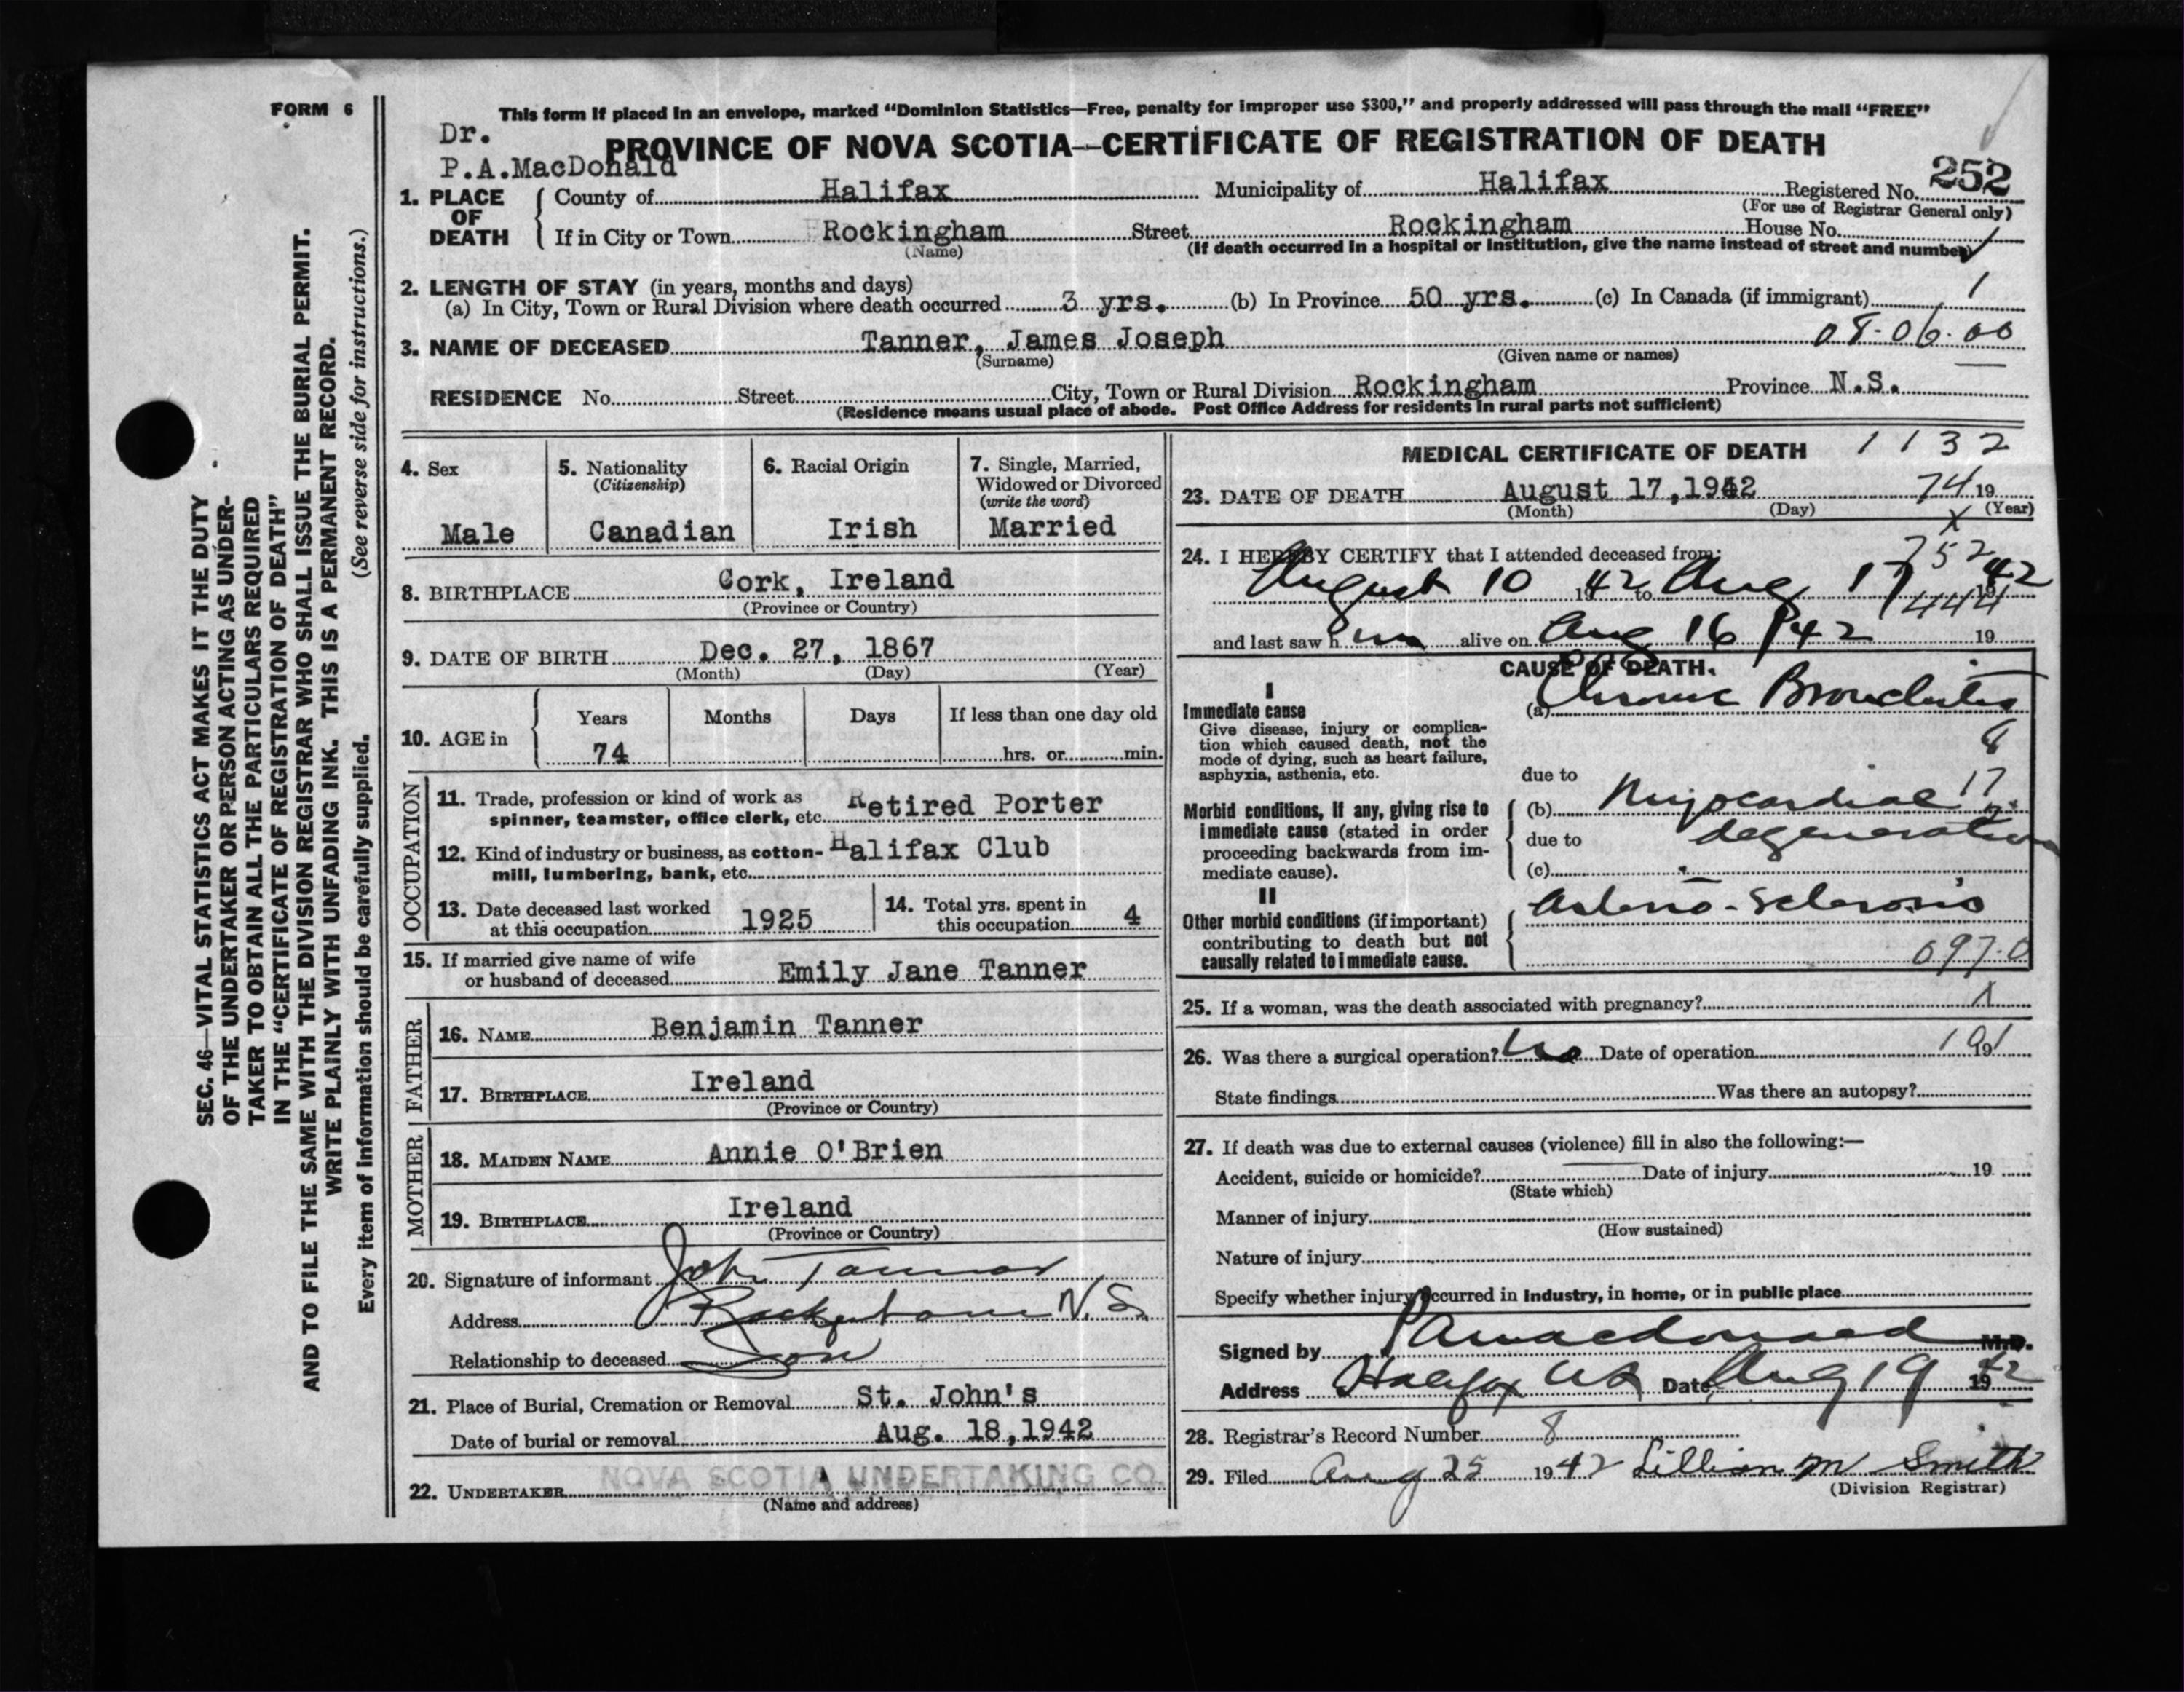 FORM 6
This form if placed in an envelope, marked "Dominion Statistics—Free, penalty for improper use $300," and properly addressed will pass through the mail "FREE"
Dr.
P.A.MacDonald
PROVINCE OF NOVA SCOTIA—CERTIFICATE OF REGISTRATION OF DEATH
1. PLACE OF DEATH
County of Halifax Municipality of Halifax Registered No. 252
(For use of Registrar General only)
If in City or Town Rockingham Street Rockingham House No.
(Name) (If death occurred in a hospital or institution, give the name instead of street and number)
2. LENGTH OF STAY (in years, months and days)
(a) In City, Town or Rural Division where death occurred 3 yrs. (b) In Province 50 yrs. (c) In Canada (if immigrant) 1
3. NAME OF DECEASED Tanner, James Joseph 08-06-00
(Surname) (Given name or names)
RESIDENCE No. Street City, Town or Rural Division Rockingham Province N.S.
(Residence means usual place of abode. Post Office Address for residents in rural parts not sufficient)
4. Sex
Male
5. Nationality
(Citizenship)
Canadian
6. Racial Origin
Irish
7. Single, Married,
Widowed or Divorced
(write the word)
Married
8. BIRTHPLACE Cork, Ireland
(Province or Country)
9. DATE OF BIRTH Dec. 27, 1867
(Month) (Day) (Year)
10. AGE in
Years Months Days If less than one day old
74 hrs. or min.
OCCUPATION
11. Trade, profession or kind of work as Retired Porter
spinner, teamster, office clerk, etc.
12. Kind of industry or business, as cotton- Halifax Club
mill, lumbering, bank, etc.
13. Date deceased last worked
at this occupation 1925
14. Total yrs. spent in
this occupation 4
15. If married give name of wife
or husband of deceased Emily Jane Tanner
FATHER
16. NAME Benjamin Tanner
17. BIRTHPLACE Ireland
(Province or Country)
MOTHER
18. MAIDEN NAME Annie O'Brien
19. BIRTHPLACE Ireland
(Province or Country)
20. Signature of informant John Tanner
Address Rockingham N.S.
Relationship to deceased Son
21. Place of Burial, Cremation or Removal St. John's
Date of burial or removal Aug. 18,1942
22. UNDERTAKER NOVA SCOTIA UNDERTAKING CO.
(Name and address)
MEDICAL CERTIFICATE OF DEATH 1132
23. DATE OF DEATH August 17,1942 74 19
(Month) (Day) (Year)
X
24. I HEREBY CERTIFY that I attended deceased from: 752
August 10 1942 to Aug 17 1942
444
and last saw him alive on Aug 16 1942 19
CAUSE OF DEATH.
I
Immediate cause (a) Chronic Bronchitis
Give disease, injury or complica-
tion which caused death, not the
mode of dying, such as heart failure,
asphyxia, asthenia, etc.
due to
17
Morbid conditions, if any, giving rise to
immediate cause (stated in order
proceeding backwards from im-
mediate cause).
(b) Myocardial
due to degeneration
(c)
II
Other morbid conditions (if important)
contributing to death but not
causally related to immediate cause.
Arterio-Sclerosis
097-0
25. If a woman, was the death associated with pregnancy? X
26. Was there a surgical operation? No Date of operation 19
101
State findings Was there an autopsy?
27. If death was due to external causes (violence) fill in also the following:—
Accident, suicide or homicide? Date of injury 19
(State which)
Manner of injury
(How sustained)
Nature of injury
Specify whether injury occurred in industry, in home, or in public place
Signed by P A Macdonald M.D.
Address Halifax NS Date Aug 19 1942
28. Registrar's Record Number 8
29. Filed Aug 25 1942 Lillian M Smith
(Division Registrar)
SEC. 46—VITAL STATISTICS ACT MAKES IT THE DUTY
OF THE UNDERTAKER OR PERSON ACTING AS UNDER-
TAKER TO OBTAIN ALL THE PARTICULARS REQUIRED
IN THE "CERTIFICATE OF REGISTRATION OF DEATH"
AND TO FILE THE SAME WITH THE DIVISION REGISTRAR WHO SHALL ISSUE THE BURIAL PERMIT.
WRITE PLAINLY WITH UNFADING INK. THIS IS A PERMANENT RECORD.
Every item of information should be carefully supplied. (See reverse side for instructions.)